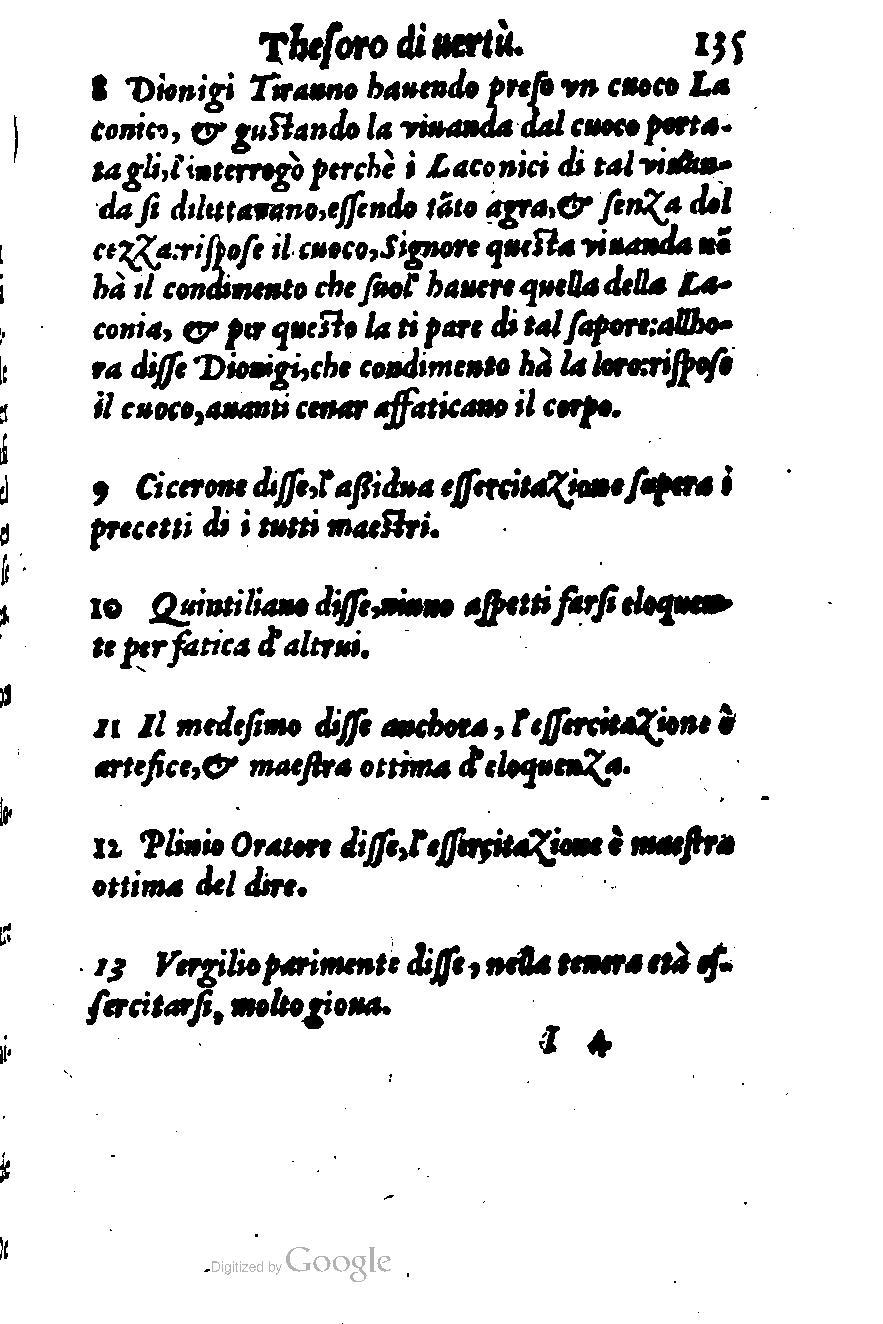 Theſoro di uertù. 135
8 Dionigi Tiranno hauendo preſo vn cuoco La
conico, & guſtando la viuanda dal cuoco porta-
tagli, l'interrogò perchè i Laconici di tal viuan-
da ſi dilettauano, eſſendo tāto agra, & ſenza dol
cezza: riſpoſe il cuoco, Signore queſta viuanda nō
hà il condimento che ſuol' hauere quella della La-
conia, & per queſto la ti pare di tal ſapore: allho-
ra diſſe Dionigi, che condimento hà la loro: riſpoſe
il cuoco, auanti cenar affaticano il corpo.
9 Cicerone diſſe, l'aßidua eſſercitazione ſupera i
precetti di i tutti maeſtri.
10 Quintiliano diſſe, niuno aſpetti farſi eloquen-
te per fatica d'altrui.
11 Il medeſimo diſſe anchora, l'eſſercitazione è
artefice, & maeſtra ottima d'eloquenza.
12 Plinio Oratore diſſe, l'eſſercitazione è maeſtra
ottima del dire.
13 Vergilio parimente diſſe, nella tenera età eſ-
ſercitarſi, molto gioua.
I 4
Digitized by Google